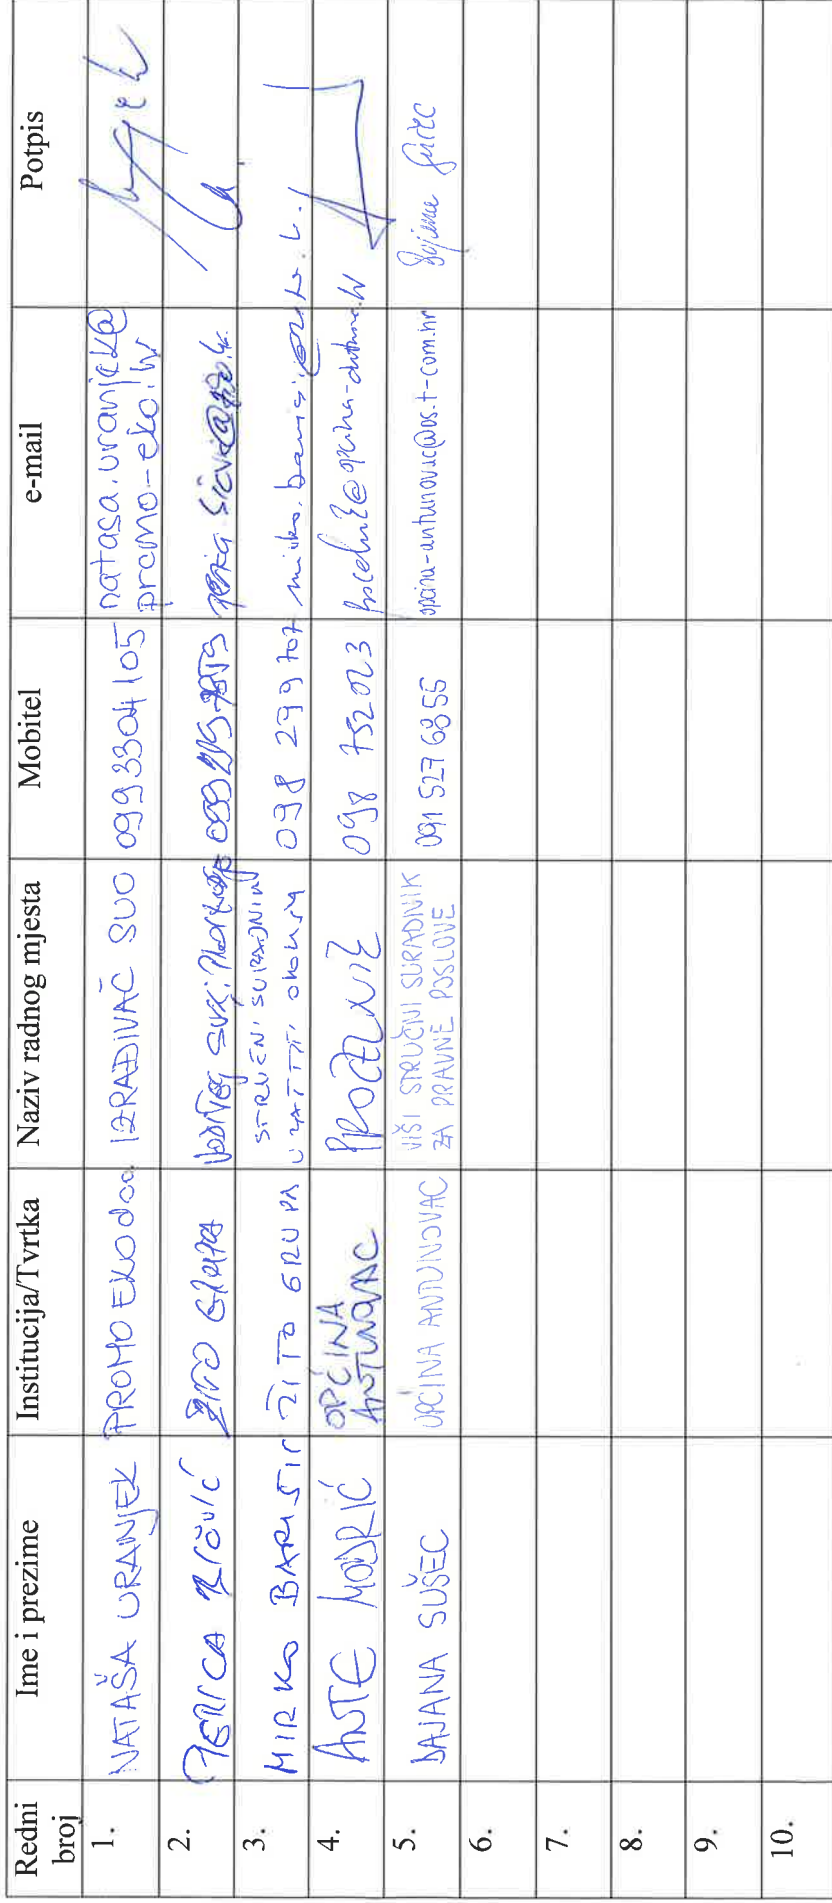 Redni broj Ime i prezime Institucija/Tvrtka Naziv radnog mjesta Mobitel e-mail Potpis
1. NATAŠA URANJEK PROMO EKO doo IZRAĐIVAČ SUO 099 3304 105 natasa.uranjek@
promo-eko.hr
2. PERICA ŽITO GRUPA VODITELJ
STRUČNI SURADNIK
3. MIRKO BARIŠIĆ ŽITO GRUPA U ZAŠTITI OKOLIŠA 098 299 707
4. ANTE MODRIĆ OPĆINA
ANTUNOVAC PROČELNIK 098 752023 procelnik@opcina-antunovac.hr
5. DAJANA SUŠEC OPĆINA ANTUNOVAC VIŠI STRUČNI SURADNIK
ZA PRAVNE POSLOVE 091 527 6855 opcina-antunovac@os.t-com.hr Dajana Sušec
6.
7.
8.
9.
10.